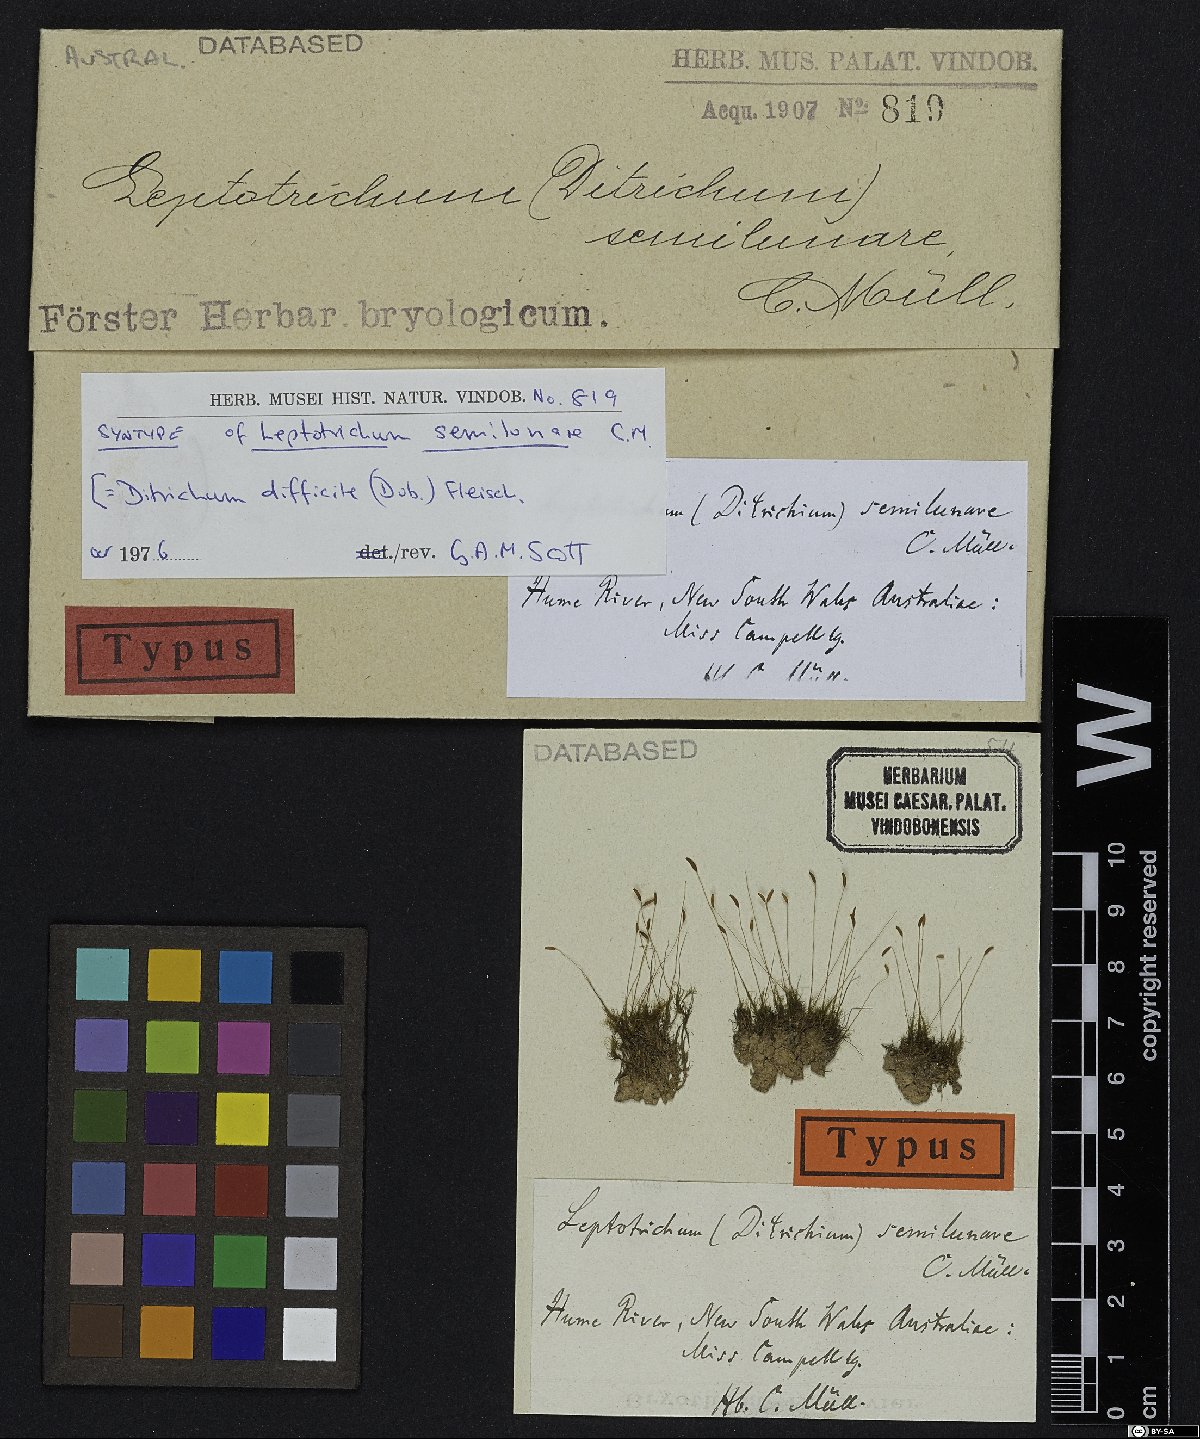 AUSTRAL. DATABASED
HERB. MUS. PALAT. VINDOB.
Acqu. 1907 No. 819
Leptotrichum (Ditrichum)
semilunare,
C. Müll.
Förster Herbar. bryologicum.
HERB. MUSEI HIST. NATUR. VINDOB. No. 819
SYNTYPE of Leptotrichum semilunare C.M.
[= Ditrichum difficile (Dub.) Fleisch.
1976 det./rev. G.A.M. SCOTT
um (Ditrichium) semilunare
C. Müll.
Hume River, New South Wales Australiae:
Miss Campell lg.
Typus
DATABASED
HERBARIUM
MUSEI CAESAR. PALAT.
VINDOBONENSIS
Typus
Leptotrichum (Ditrichium) semilunare
C. Müll.
Hume River, New South Wales Australiae:
Miss Campell lg.
Hb. C. Müll.
W
0 1 2 3 4 5 6 7 8 9 10
cm copyright reserved
BY-SA